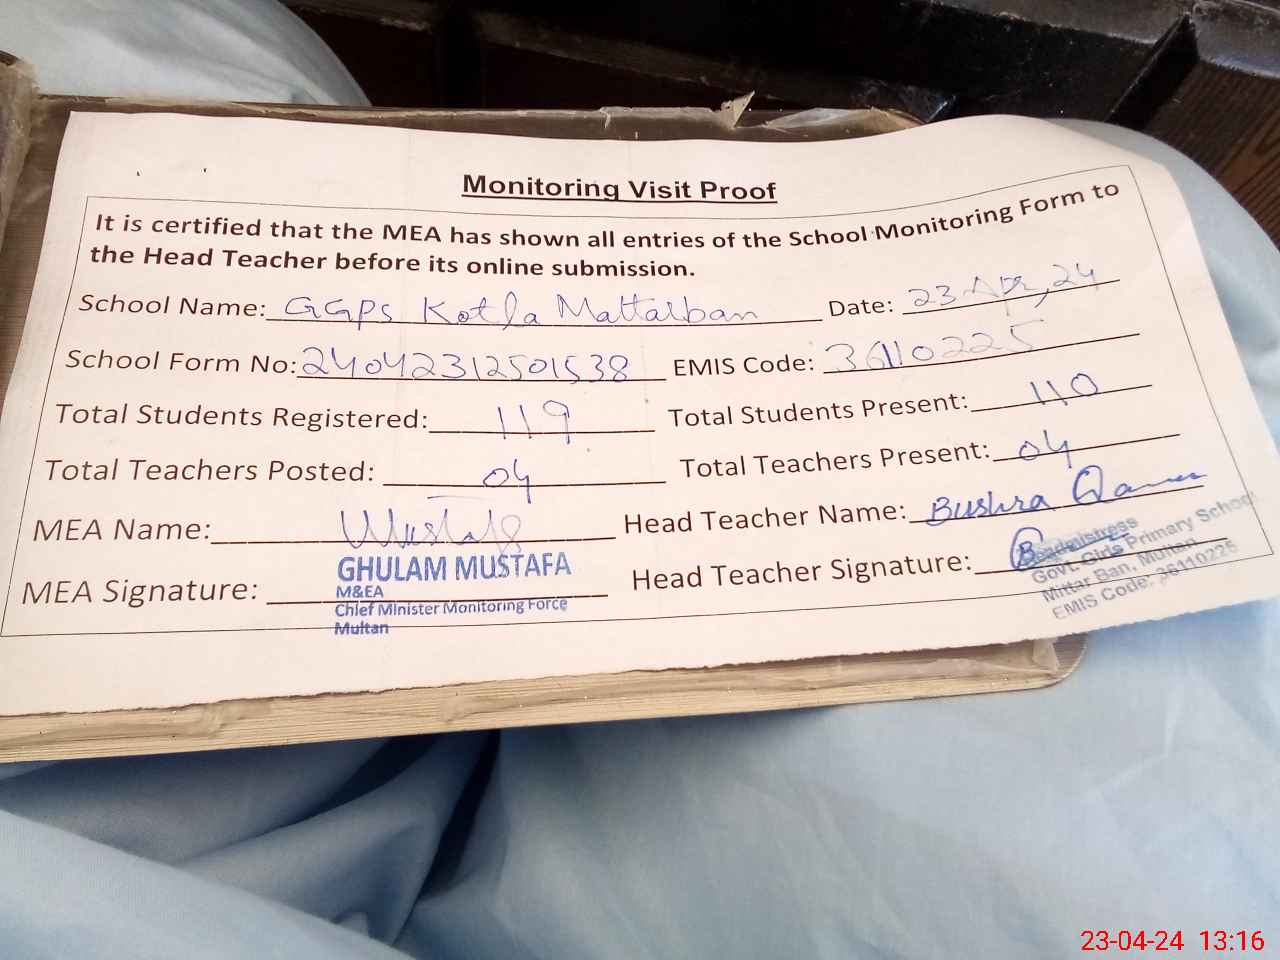 Monitoring Visit Proof
It is certified that the MEA has shown all entries of the School Monitoring Form to
the Head Teacher before its online submission.
School Name: GGPS Kotla Mattalban Date: 23 Apr, 24
School Form No: 24042312501538 EMIS Code: 36110225
Total Students Registered: 119 Total Students Present: 110
Total Teachers Posted: 04 Total Teachers Present: 04
MEA Name: Mustafa Head Teacher Name: Bushra Qamer
MEA Signature: Head Teacher Signature:
GHULAM MUSTAFA
M&EA
Chief Minister Monitoring Force
Multan
Headmistress
Govt. Girls Primary School
Mittar Ban, Multan
EMIS Code: 36110225
23-04-24 13:16